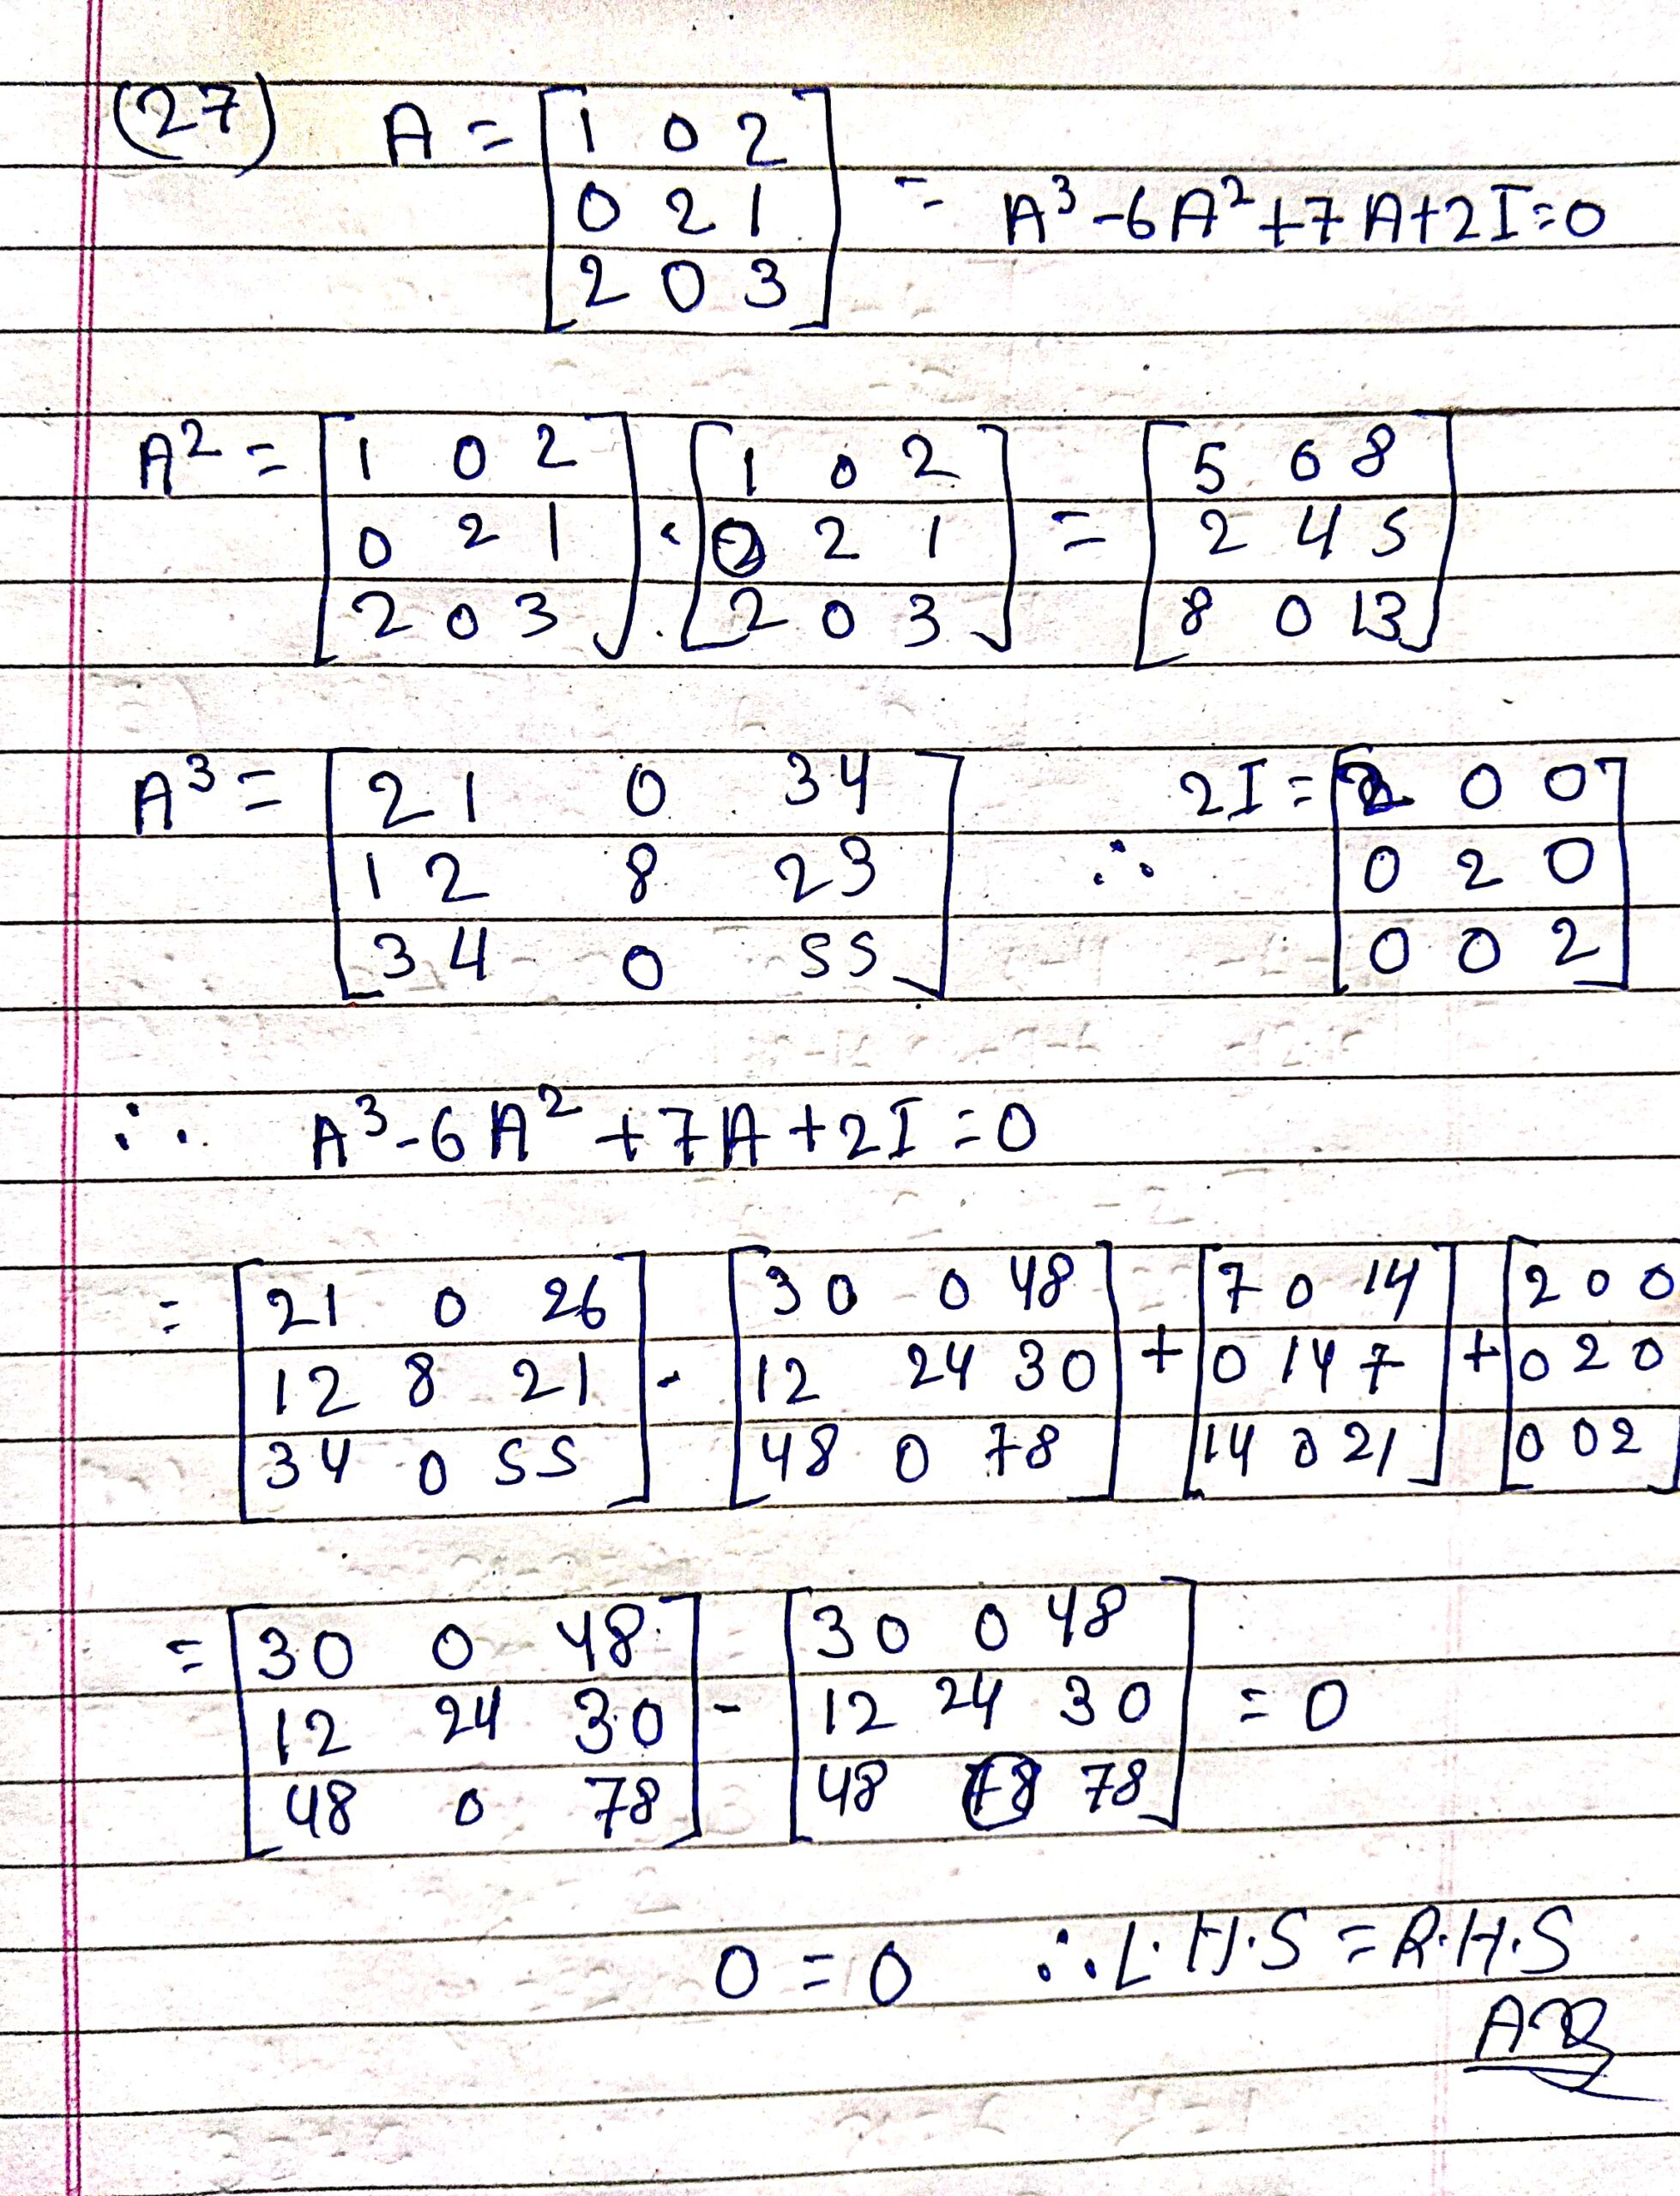 (27) A = [1 0 2
0 2 1
2 0 3] = A³-6A²+7A+2I=0
A² = [1 0 2
0 2 1
2 0 3] . [1 0 2
0 2 1
2 0 3] = [5 0 8
2 4 5
8 0 13]
A³ = [21 0 34
12 8 23
34 0 55] ∴ 2I = [2 0 0
0 2 0
0 0 2]
∴ A³-6A²+7A+2I=0
= [21 0 26
12 8 21
34 0 55] - [30 0 48
12 24 30
48 0 78] + [7 0 14
0 14 7
14 0 21] + [2 0 0
0 2 0
0 0 2]
= [30 0 48
12 24 30
48 0 78] - [30 0 48
12 24 30
48 0 78] = 0
0 = 0 ∴ L.H.S = R.H.S